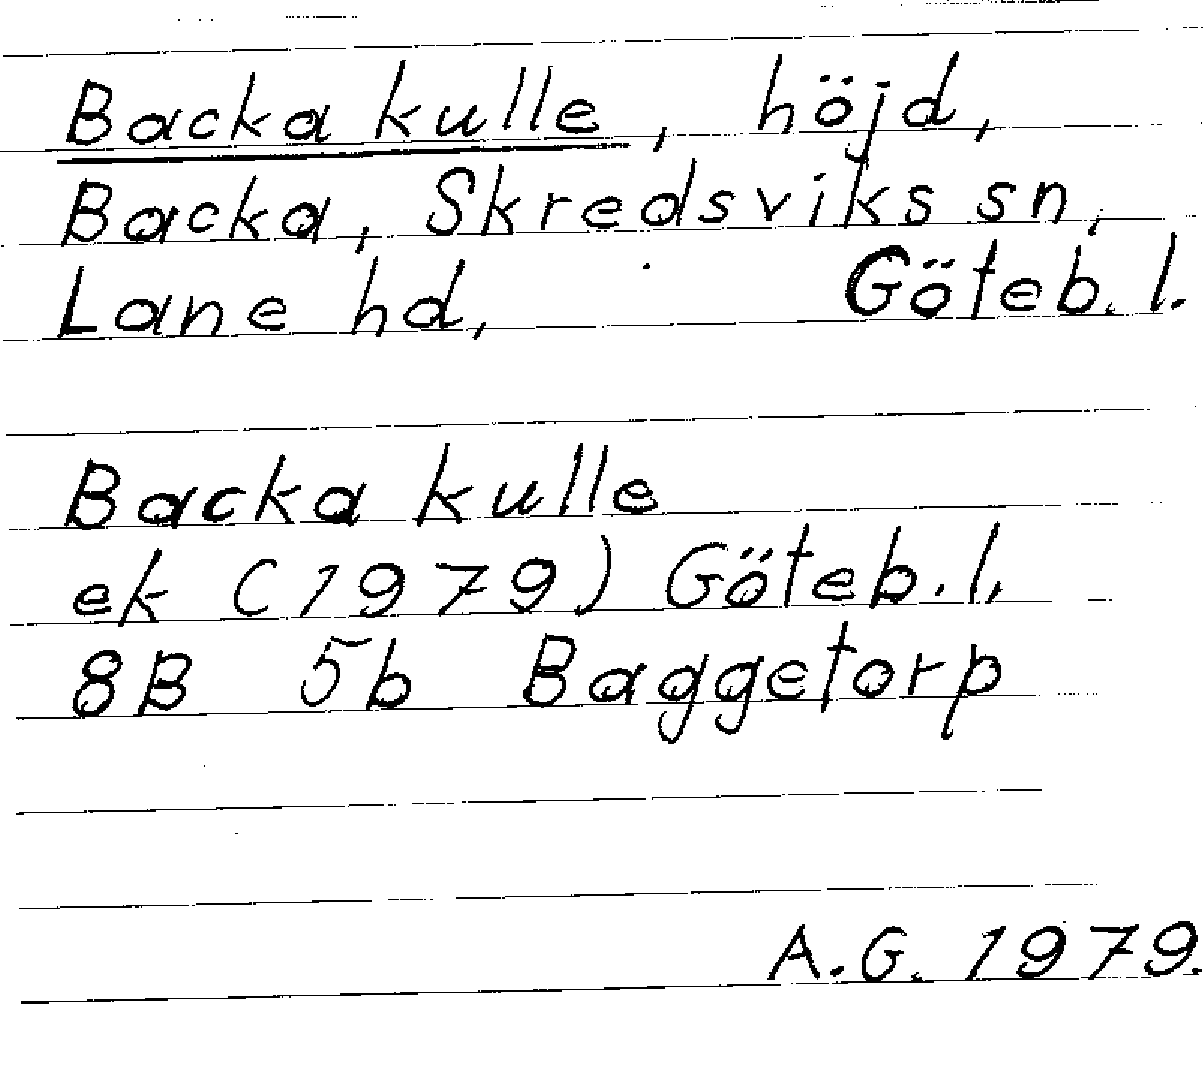 Backa kulle, höjd,
Backa, Skredsviks sn,
Lane hd, Göteb. l.
Backa kulle
ek (1979) Göteb. l.
8B 5b Baggetorp
A.G. 1979.